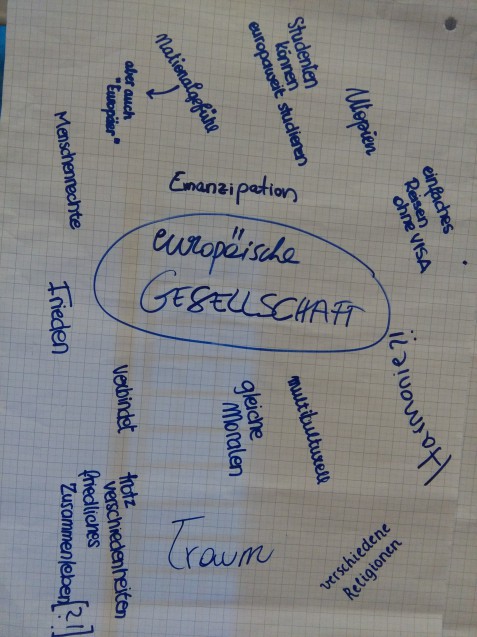 Studenten
können
europaweit studieren
Nationalgefühle
aber auch
"Europäer"
Utopien
Menschenrechte
Emanzipation
einfaches
Reisen
ohne VISA
europäische
GESELLSCHAFT
Frieden
Harmonie
verbindet
gleiche
Moralen
multikulturell
trotz
verschiedenheiten
friedliches
Zusammenleben [?!]
Traum
verschiedene
Religionen